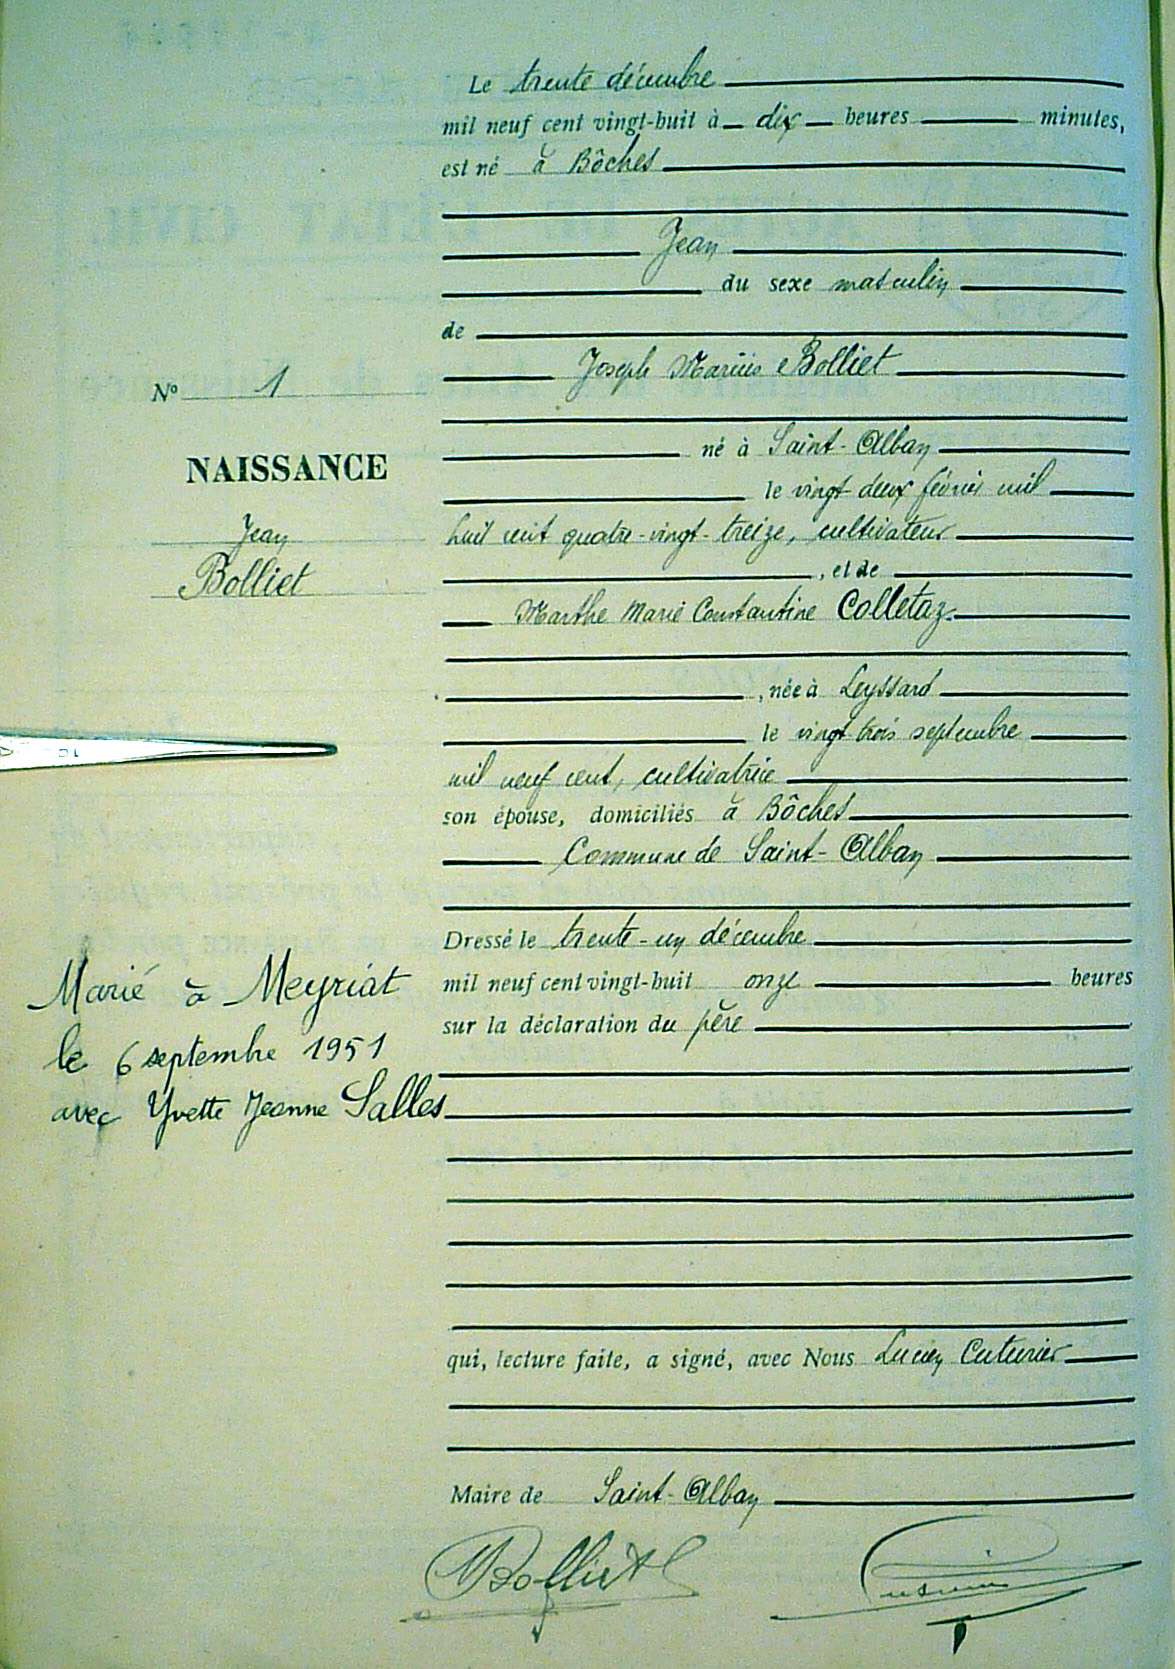 Le trente décembre
mil neuf cent vingt-huit à dix heures minutes,
est né à Bôches
Jean
du sexe masculin
de
Joseph Marius Bolliet
né à Saint-Alban
le vingt-deux février mil
huit cent quatre-vingt-treize, cultivateur
, et de
Marthe Marie Constantine Colletaz
, née à Leyssard
le vingt trois septembre
mil neuf cent, cultivatrice
son épouse, domiciliés à Bôches
Commune de Saint-Alban
Dressé le trente-un décembre
mil neuf cent vingt-huit onze heures
sur la déclaration du père
qui, lecture faite, a signé, avec Nous Lucien Cuturier
Maire de Saint-Alban
Bolliet
No 1
NAISSANCE
Jean
Bolliet
Marié à Meyriat
le 6 septembre 1951
avec Yvette Jeanne Salles